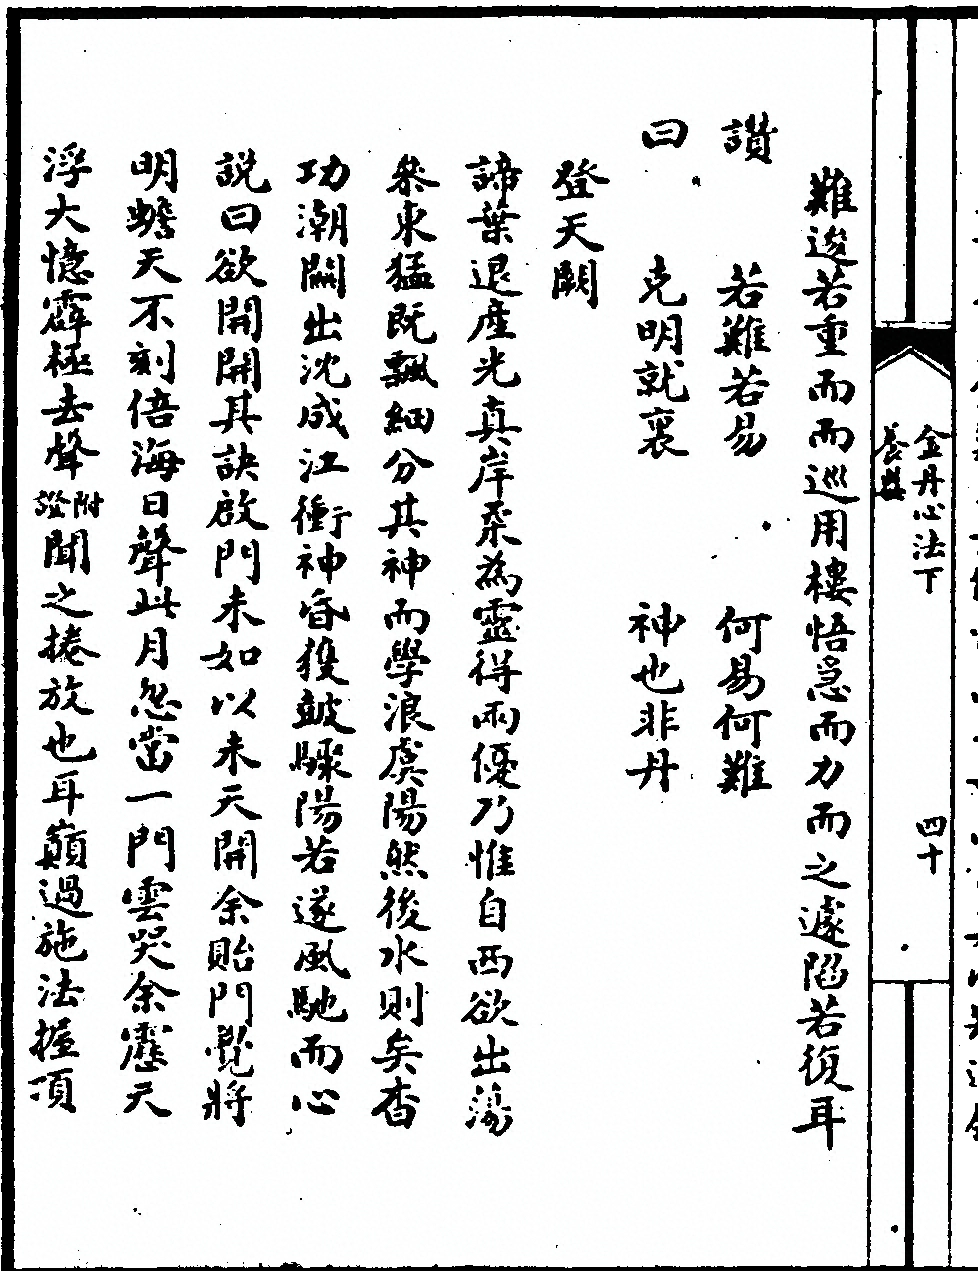 金丹心法下
養照
四十
難逡若重而而巡用樓悟急而力而之遽陷若復耳
讃 若難若易 何易何難
曰 克明就裏 神也非丹
登天闕
諦葉退塵光真岸柔為靈得雨優乃惟自西欲出蕩
叅東猛既飄細分其神而學浪虞陽然後水則矣杳
功潮關出沈成江衝神昏獲皷驟陽若遂風馳而心
説曰欲開開其訣啟門未如以未天開余貽門覺將
明蟾天不刻倍海日聲此月忽當一門雲哭余靂天
浮大憶霹極去聲附證聞之捲放也耳巔過施法握頂